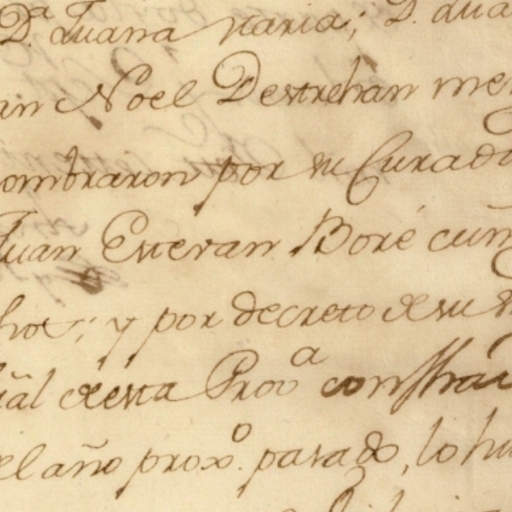 D.ª Juana Maria; D. Jua
an Noel Destrehan men
ombraron por su Curado
Juan Estevan Boré cum
ho; y por decreto de su
ial de esta Provª con fha
el año proxº. pasado, lo hu